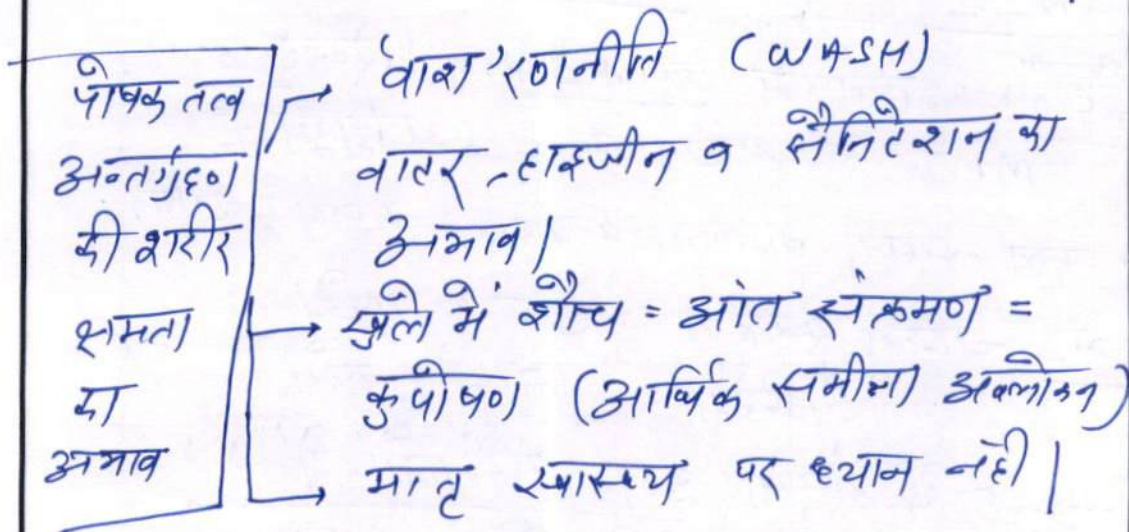 पोषक तत्व
अन्तर्ग्रहण
की शरीर
क्षमता
का
अभाव
'वाश' रणनीति (WASH)
वाटर, हाइजीन व सैनिटेशन का
अभाव।
खुले में शौच = आंत संक्रमण =
कुपोषण (आर्थिक समीक्षा अवलोकन)
मातृ स्वास्थ्य पर ध्यान नहीं।